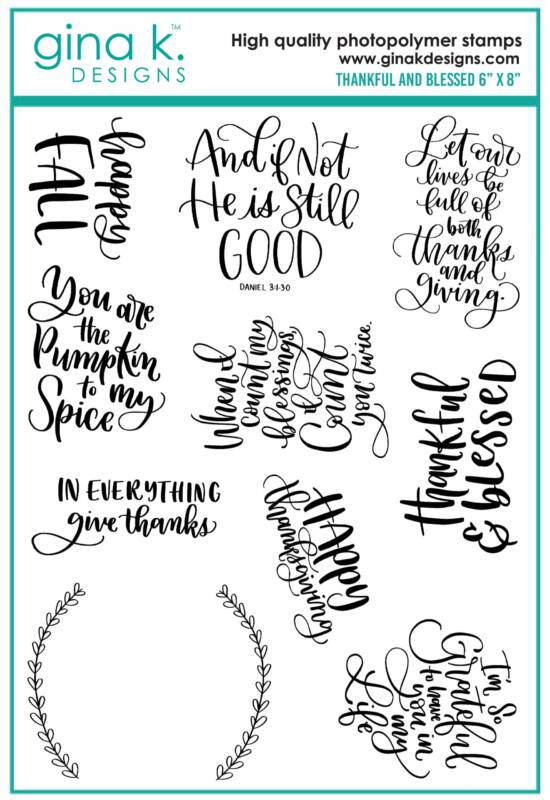 gina k.™
DESIGNS
High quality photopolymer stamps
www.ginakdesigns.com
THANKFUL AND BLESSED 6" X 8"
happy
FALL
And if Not
He is Still
GOOD
DANIEL 3:1-30
Let our
lives be
full of
both
thanks
and
giving.
You are
the
Pumpkin
to my
Spice
When i
count my
blessings,
i
Count
you twice.
thankful
& blessed
IN EVERYTHING
give thanks
HAPPY
thanksgiving
I'm So
Grateful
to have
you in
my
Life